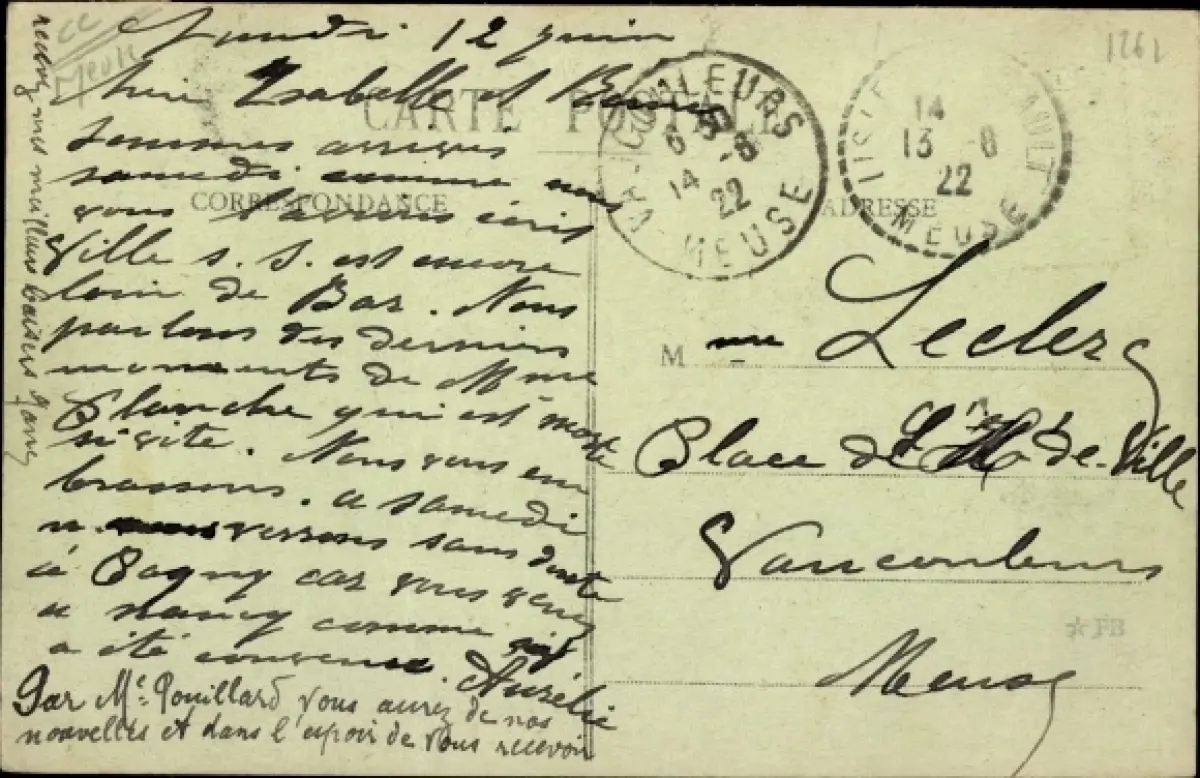 Lundi 12 juin
Chère Isabelle et
CARTE POSTALE
sommes arrivés
samedi comme nous
CORRESPONDANCE
vous l'avions écrit
Ville s. S. est encore
loin de Bar. Nous
parlons des derniers
moments de Mme
Blanche qui est morte
si vite. Nous vous em
brassons. a samedi
n verrons sans doute
à Pagny car vous venez
a nancy comme
a été convenu. Aurélie
Par Me. Pouillard vous aurez de nos
nouvelles et dans l'espoir de vous recevoir
recevez mes meilleurs baisers
VAUCOULEURS
14 -8
22
MEUSE
14
13 -8
22
MEUSE
1261
ADRESSE
M me Leclerc
Place de l'Hô de-Ville
Vaucouleurs
*FB
Meuse